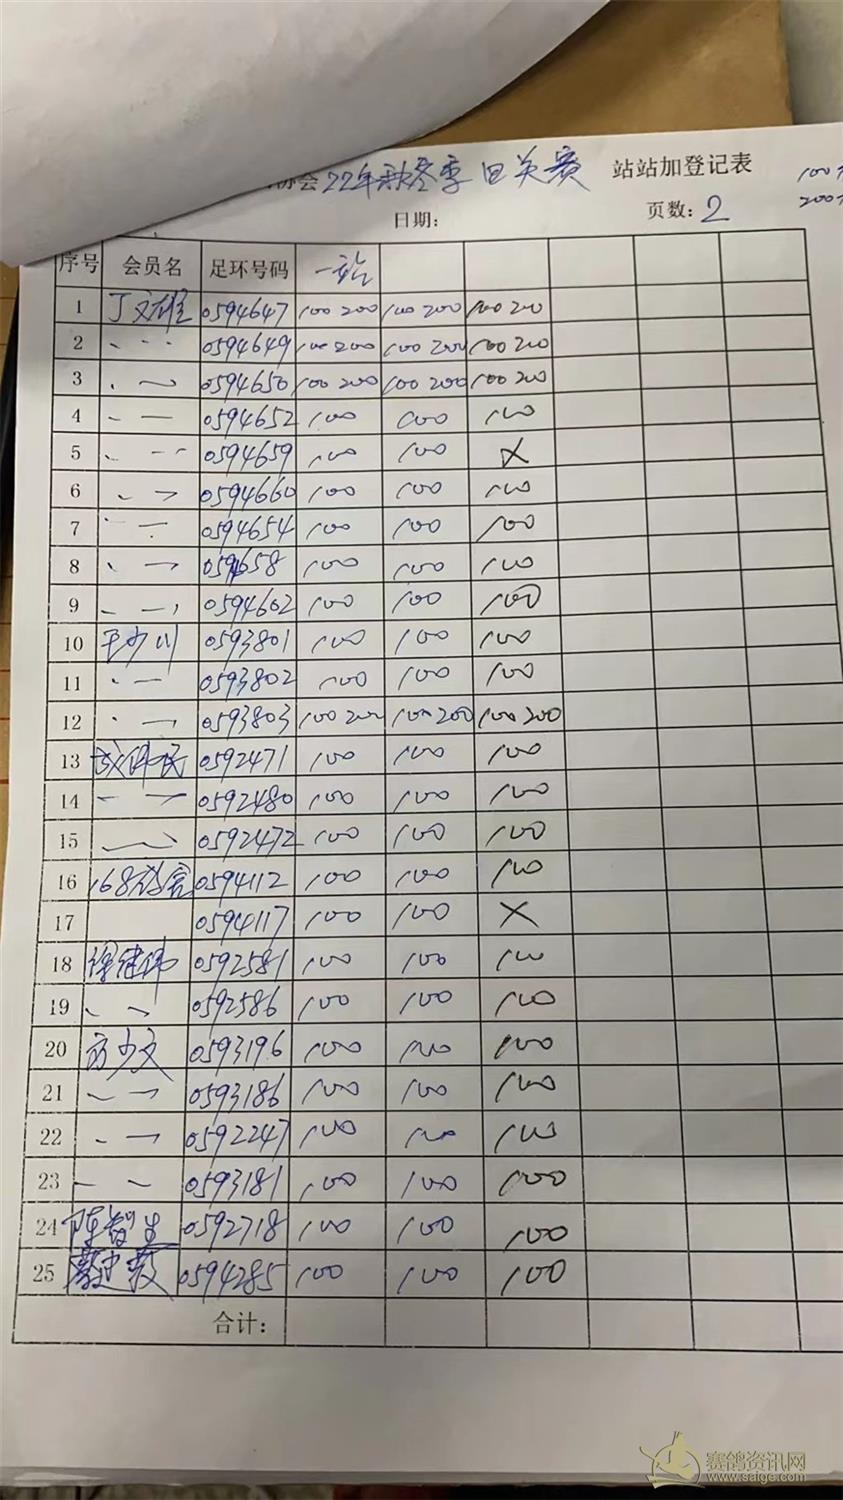 协会 22年秋冬季四关赛 站站加登记表
100
200
日期: 页数: 2
序号 会员名 足环号码 一站
1 丁文雄 0594647 100 200 100 200 100 200
2 0594649 100 200 100 200 100 200
3 0594650 100 200 100 200 100 200
4 0594652 100 100 100
5 0594659 100 100 ×
6 0594660 100 100 100
7 0594654 100 100 100
8 0594658 100 100 100
9 0594602 100 100 100
10 王少川 0593801 100 100 100
11 0593802 100 100 100
12 0593803 100 200 100 200 100 200
13 0592471 100 100 100
14 0592480 100 100 100
15 0592472 100 100 100
16 168鸽舍 0594112 100 100 100
17 0594117 100 100 ×
18 徐建伟 0592581 100 100 100
19 0592586 100 100 100
20 方少文 0593196 100 100 100
21 0593186 100 100 100
22 0592247 100 100 100
23 0593181 100 100 100
24 陈智生 0592718 100 100 100
25 0594285 100 100 100
合计:
赛鸽资讯网
www.saige.com